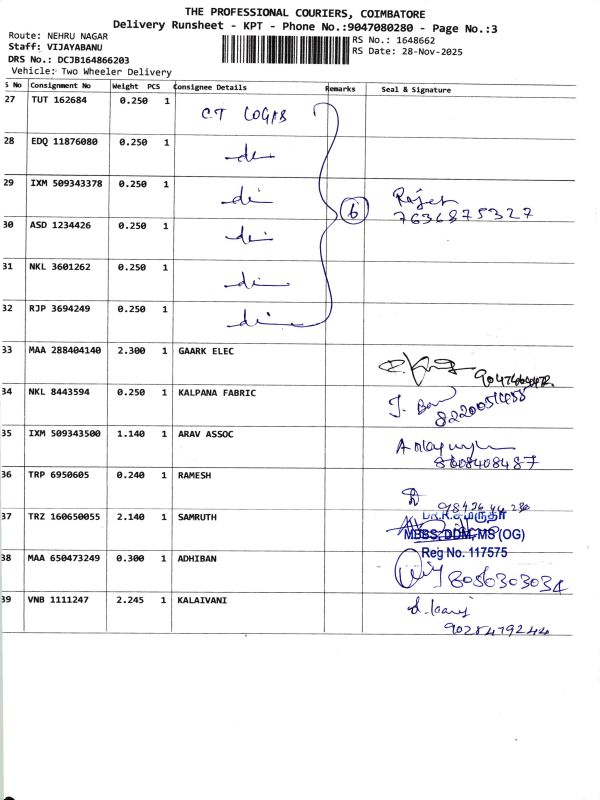 THE PROFESSIONAL COURIERS, COIMBATORE
Delivery Runsheet - KPT - Phone No.:9047080280 - Page No.:3
Route: NEHRU NAGAR
RS No.: 1648662
Staff: VIJAYABANU
RS Date: 28-Nov-2025
DRS No.: DCJB164866203
Vehicle: Two Wheeler Delivery
S No Consignment No Weight PCS Consignee Details Remarks Seal & Signature
27 TUT 162684 0.250 1 CT
28 EDQ 11876080 0.250 1
29 IXM 509343378 0.250 1 6
7636875327
30 ASD 1234426 0.250 1
31 NKL 3601262 0.250 1
32 RJP 3694249 0.250 1
33 MAA 288404140 2.300 1 GAARK ELEC
34 NKL 8443594 0.250 1 KALPANA FABRIC
35 IXM 509343500 1.140 1 ARAV ASSOC
8608408487
36 TRP 6950605 0.240 1 RAMESH
37 TRZ 160650055 2.140 1 SAMRUTH
MBBS, DDM, MS (OG)
Reg No. 117575
38 MAA 650473249 0.300 1 ADHIBAN 8056303034
39 VNB 1111247 2.245 1 KALAIVANI